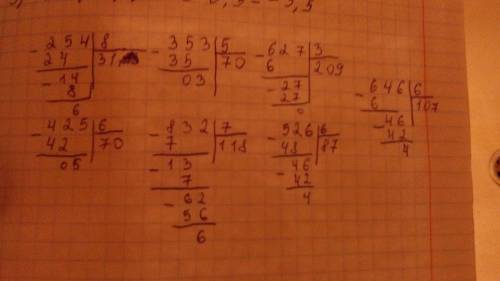 - 254 | 8
24 | 31
- 14
8
6
- 353 | 5
35 | 70
03
- 627 | 3
6 | 209
- 27
27
0
- 646 | 6
6 | 107
- 46
42
4
- 425 | 6
42 | 70
05
- 832 | 7
7 | 118
- 13
7
- 62
56
6
- 526 | 6
48 | 87
- 46
42
4